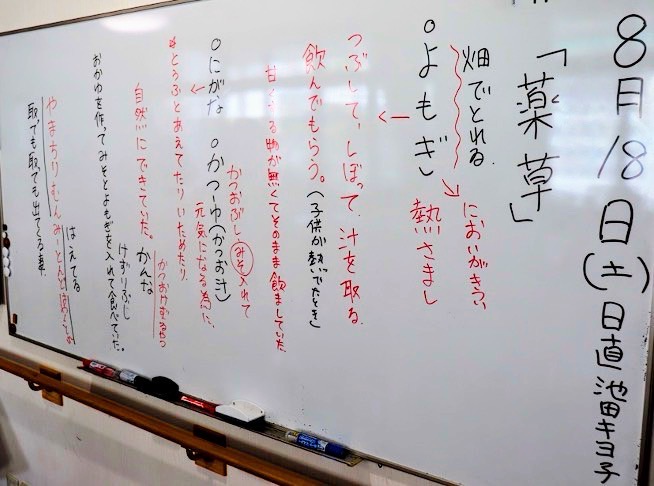 8月18日(土)日直 池田キヨ子
「薬草」
畑でとれる
においがきつい
○よもぎ
熱さまし
つぶして、しぼって、汁を取る。
飲んでもらう。(子供が熱でたとき)
甘くする物が無くてそのまま飲ましていた。
○にがな ○かつーゆ(かつお汁)
かつおぶし みそ入れて
元気になる為に、
*とうふとあえてたりいためたり
自然にできていた。
かんな
かつおけずるやつ
けずりぶし
おかゆを作ってみそとよもぎを入れて食べていた。
はえてる
やまちりむん
取ても取ても出てくる事。